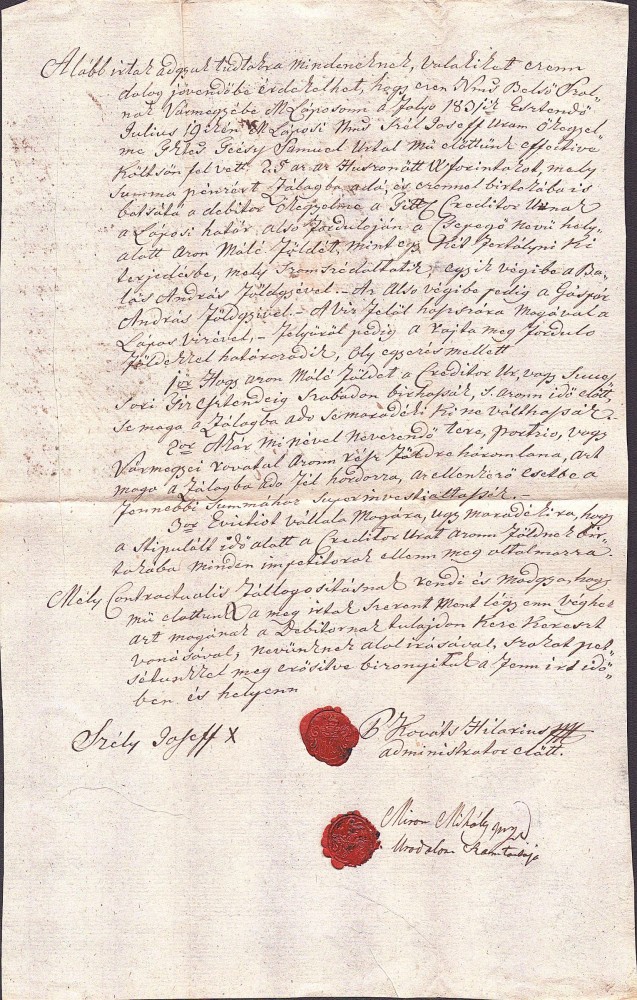 Alább irtak adgyuk tudtokra mindeneknek, valakiket ezenn
dolog jövendőbe érdekelhet, hogy ezen Nms Belső Szol„
nak Vármegyébe M Láposonn a folyó 1831ik Esztendő
Julius 19ikén M Láposi Nms Szél Joseff Uram Őkegyel„
me Gttes Gecsy Samuel Urtol mü előttünk effective
költsön fel vett 25 az az Huszonött Vforintokot, mely
Summa pénzért Zálagba ada, és ezennel birtokába is
botsáta a debitor Őkegyelme a Titt Creditor Urnak
a Láposi határ alsó fordulóján a Csepegő nevü hely„
alatt azon Málé földét mint egy két vertályni ki
terjedésbe, mely szomszédoltatik egyik végibe a Ba„
lás András földgyével. – Az Alsó végibe pedig a Gáspár
András földgyével. – A viz felöl hosszára magával a
Lápos vizével, – felyüről pedig a rajta meg forduló
földekkel határozódik, oly egyezés mellett
1ör Hogy azon Málé földet a Creditor Ur, vagy Succes
sori Esztendeig Szabadon birhassák, 's azonn idő előtt,
se maga a Zálagba adó se maradéki ki ne válthassák.
2or Akár mi nével nevezendő tere, portio, vagy
Vármegyei rovatal azonn rész földre háromlana, azt
maga a Zálagba adó fél hordozza, az ellenkező esetbe a
fennebbi Summához superinvestiáltassék. –
3or Evictiot vállala Magára, ugy maradékira, hogy
a Stipulált idő alatt a Creditor Urat azonn földnek bir„
tokába minden impetitorok ellenn meg oltalmazza.
Mely Contractualis Zállogositásnak rendi és módgya, hogy
mü előttünk a meg irtak szerent ment légyenn véghez
azt magának a Debitornak tulajdon keze kereszt
vonásával, nevünknek alol irásával, szokott pet„
sétünkkel meg erősitve bizonyittuk a fenn irt idő„
ben és helyenn
Szély Joseff X
P Kováts Hilarius
administrator előtt.
Miron Mihály
Uradalom